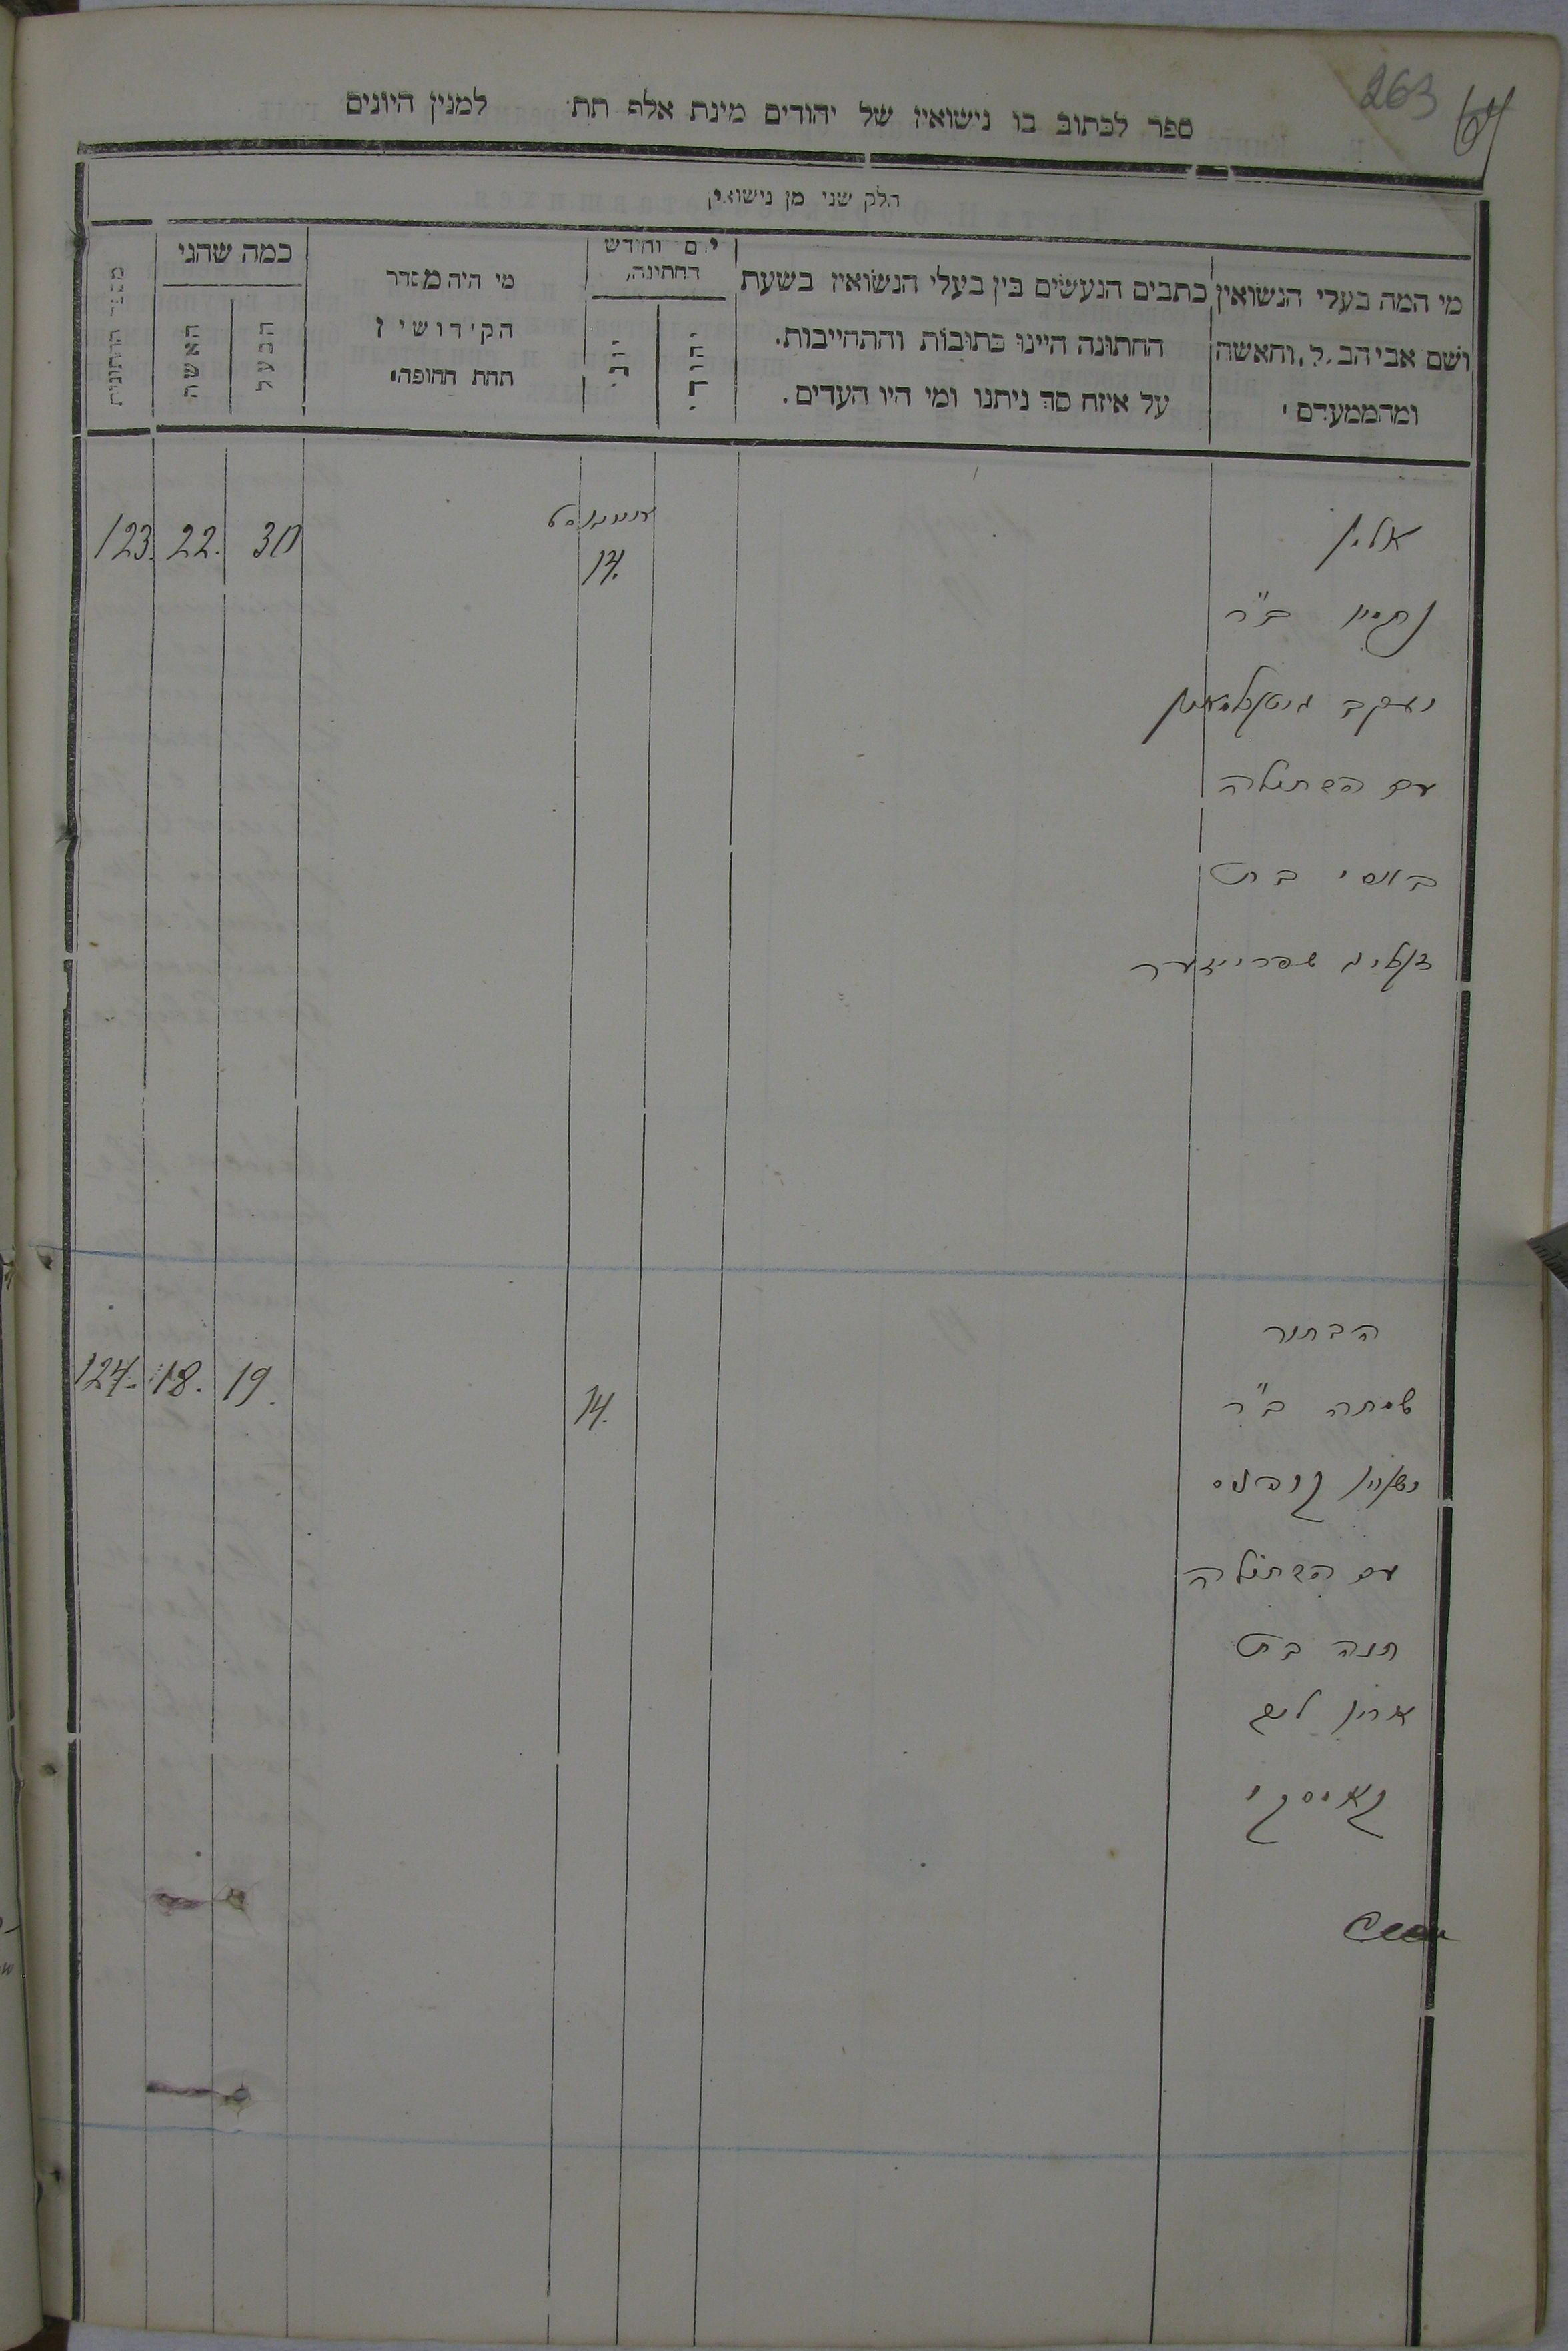 263
64
ספר לכתוב בו נישואין של יהודים מינת אלף תת למנין היונים
חלק שני מן נישואין
מי המה בעלי הנשואין
ושם אבי הב.ל, והאשה
ומהממעדם
כתבים הנעשים בין בעלי הנשואין בשעת
החתונה היינו כתובות והתהייבות.
על איזה סך ניתנו ומי היו העדים.
יום וחודש
החתינה,
יהודי
יוני
מי היה מסדר
הקידושין
תחת החופה
כמה שהני
הבעל
האשה
מספר החתונות
אלמן
ב"ר
יעקב
עם הבתולה
באסי בת
שפרייזער
אויגוסט
14.
30
22.
123.
הבחור
שמחה ב"ר
עם הבתולה
חנה בת
אהרן ליב
14.
19.
18.
124.